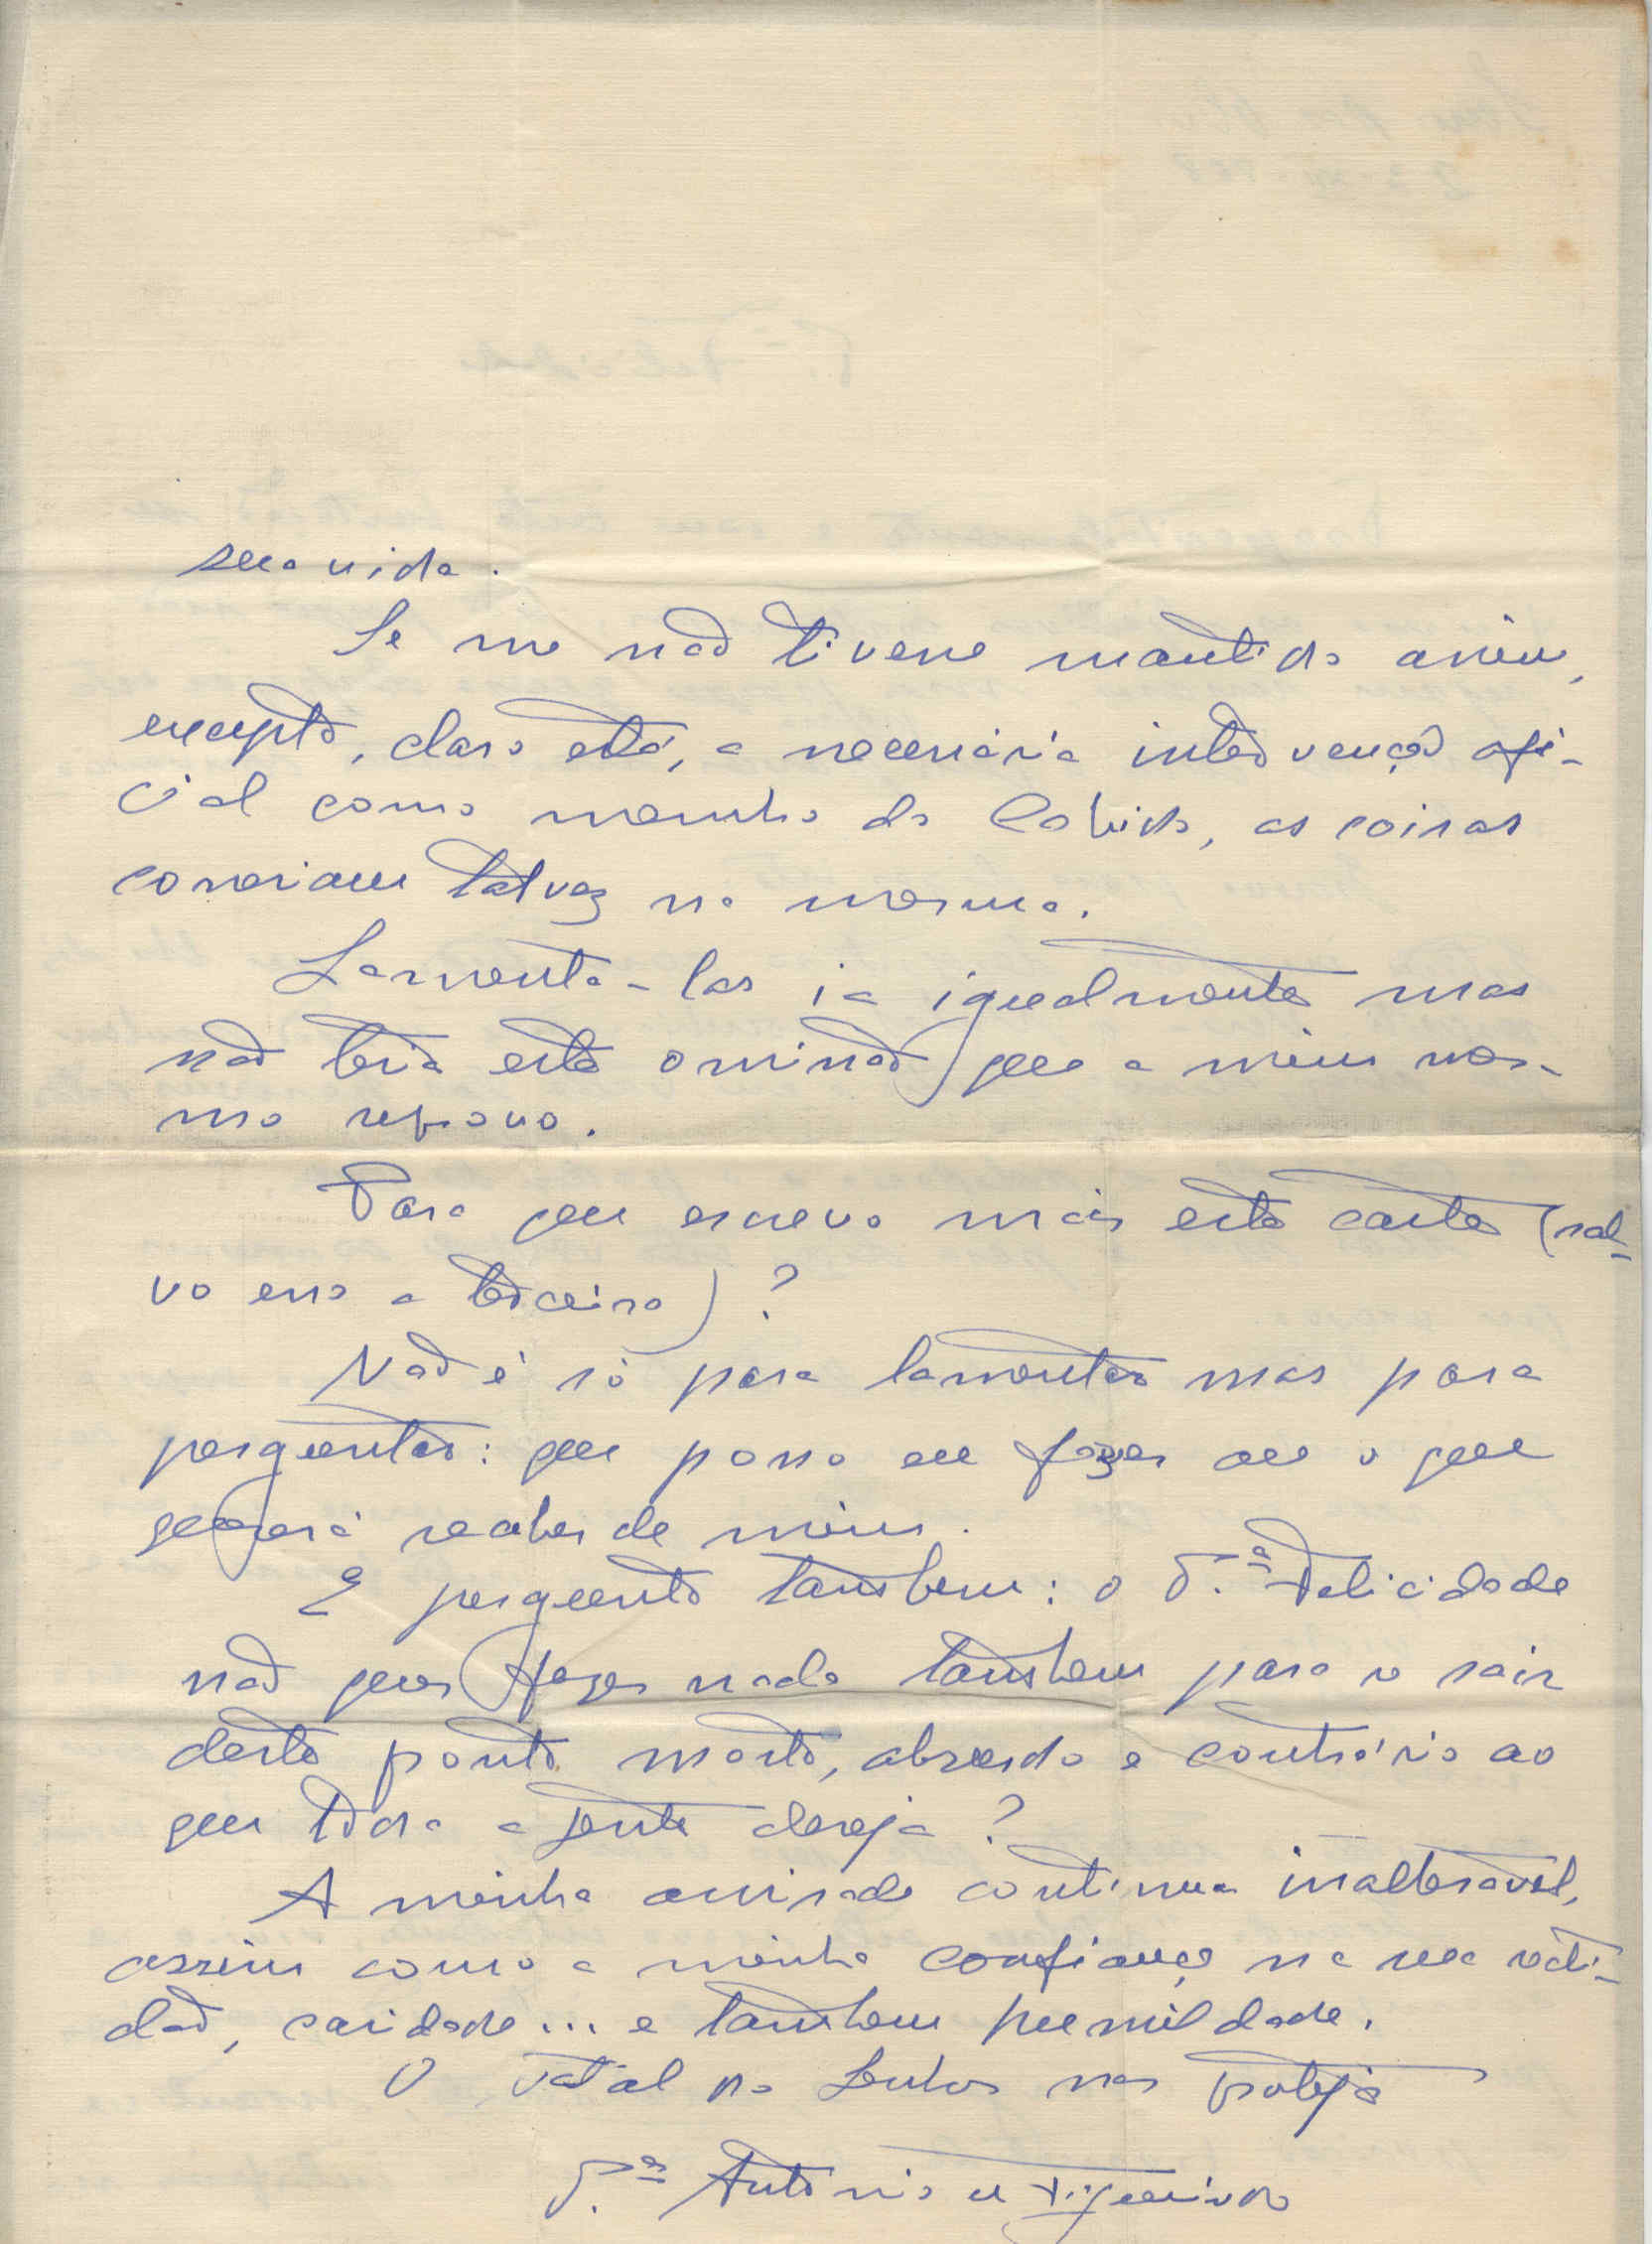 sua vida.
Se me não tivesse mantido assim,
excepto, claro está, a necessária intervenção ofi-
cial como membro do Cabido, as coisas
correriam talvez na mesma.
Lamenta-las ia igualmente mas
não teria esta omissão que a mim mes-
mo reprovo.
Para que escrevo mais esta carta (sal-
vo erro a terceira)?
Não é só para lamentar mas para
perguntar: que posso eu fazer ou o que
quererá receber de mim.
E pergunto tambem: o P.ᵉ Felicidade
não quer fazer nada tambem para o sair
deste ponto morto, absurdo e contrário ao
que toda a gente deseja?
A minha amizade continua inalteravel,
assim como a minha confiança na sua recti-
dão, caridade... e tambem humildade.
O Natal do Senhor nos proteja
P.ᵉ António de Figueiredo